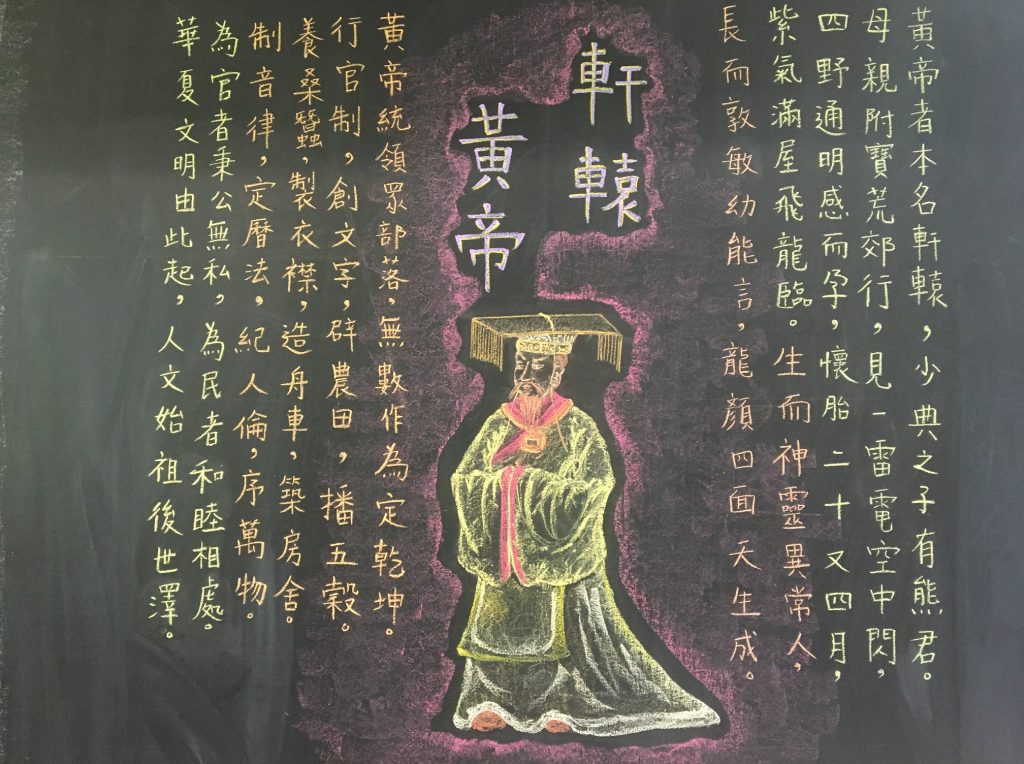 黃帝者本名軒轅，少典之子有熊君。
母親附寶荒郊行，見一雷電空中閃，
四野通明感而孕，懷胎二十又四月，
紫氣滿屋飛龍臨。生而神靈異常人，
長而敦敏幼能言，龍顏四面天生成。
軒轅
黃帝
黃帝統領眾部落，無數作為定乾坤。
行官制，創文字，辟農田，播五穀。
養桑蠶，製衣襟，造舟車，築房舍。
制音律，定曆法，紀人倫，序萬物。
為官者秉公無私，為民者和睦相處。
華夏文明由此起，人文始祖後世澤。